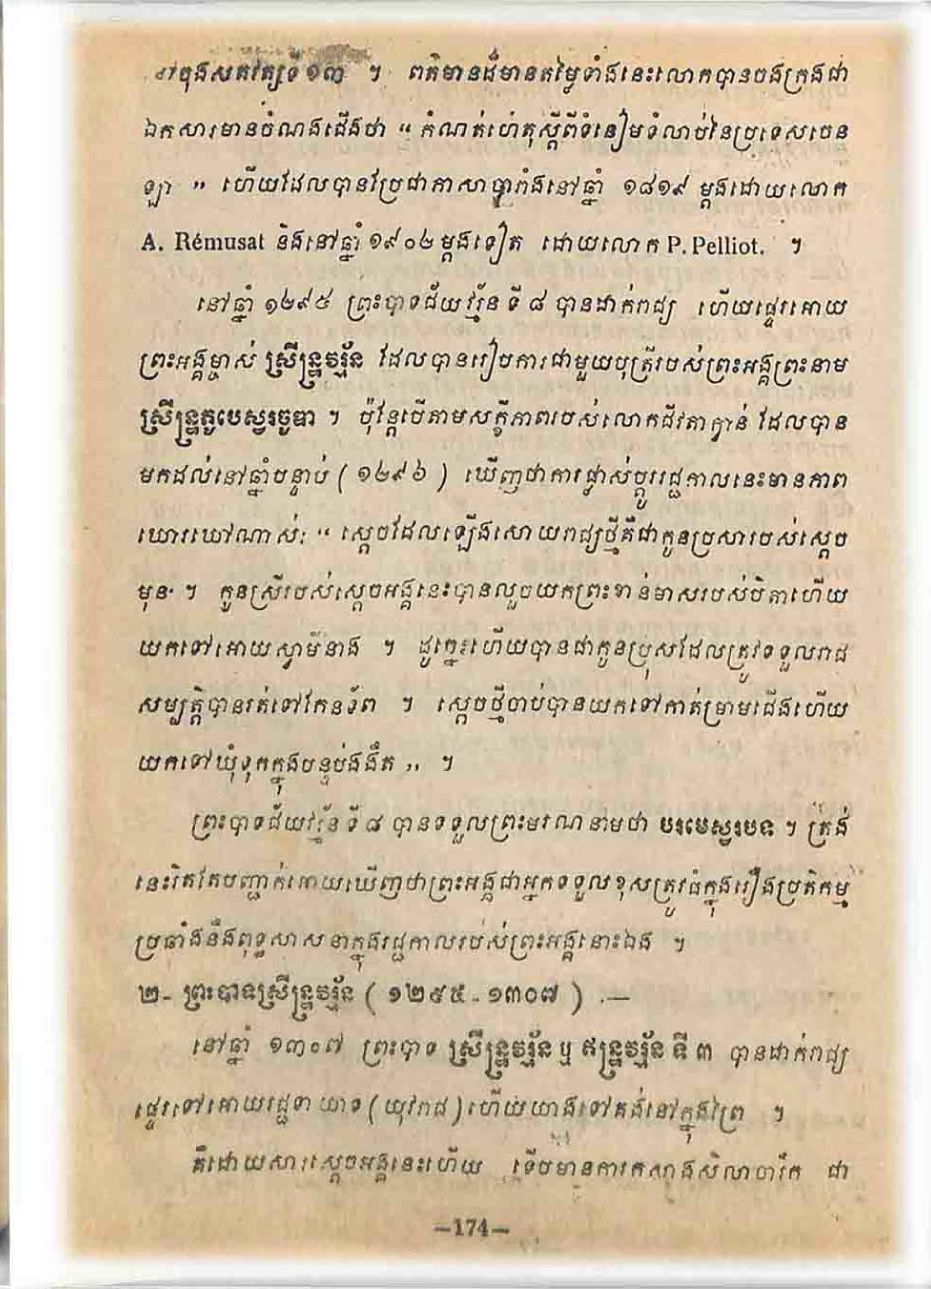 នៅចុងសតវត្សទី ១៣ ។ ពត៌មានដ៏មានតម្លៃទាំងនេះលោកបានចងក្រងជា
ឯកសារមានចំណងជើងថា “ កំណត់ហេតុស្ដីពីទំនៀមទំលាប់នៃប្រទេសចេន
ឡា ” ហើយដែលបានប្រែជាភាសាបារាំងនៅឆ្នាំ ១៨១៩ ម្ដងដោយលោក
A. Rémusat និងនៅឆ្នាំ ១៩០២ ម្ដងទៀត ដោយលោក P. Pelliot. ។
នៅឆ្នាំ ១២៩៥ ព្រះបាទជ័យវរ្ម័ន ទី ៨ បានដាក់រាជ្យ ហើយផ្ទេរអោយ
ព្រះអង្គម្ចាស់ ស្រីន្ទ្រវរ្ម័ន ដែលបានរៀបការជាមួយបុត្រីរបស់ព្រះអង្គព្រះនាម
ស្រីន្ទ្រភូបេស្វរចូឌា ។ ប៉ុន្តែបើតាមសក្ខីភាពរបស់លោកជីវតាក្វាន់ ដែលបាន
មកដល់នៅឆ្នាំបន្ទាប់ ( ១២៩៦ ) ឃើញថាការផ្លាស់ប្ដូររជ្ជកាលនេះមានភាព
ឃោរឃៅណាស់: “ ស្ដេចដែលឡើងសោយរាជ្យថ្មីគឺជាកូនប្រសារបស់ស្ដេច
មុន ។ កូនស្រីរបស់ស្ដេចអង្គនេះបានលួចយកព្រះខាន់មាសរបស់បិតាហើយ
យកទៅអោយស្វាមីនាង ។ ដូច្នេះហើយបានជាកូនប្រុសដែលត្រូវទទួលរាជ
សម្បត្តិបានរត់ទៅកែនទ័ព ។ ស្ដេចថ្មីចាប់បានយកទៅកាត់ម្រាមជើងហើយ
យកទៅឃុំទុកក្នុងបន្ទប់ងងឹត ,, ។
ព្រះបាទជ័យវរ្ម័ន ទី ៨ បានទទួលព្រះមរណនាមថា បរមេស្វរបទ ។ ត្រង់
នេះរិតតែបញ្ជាក់អោយឃើញថាព្រះអង្គជាអ្នកទទួលខុសត្រូវធំក្នុងរឿងប្រតិកម្ម
ប្រឆាំងនឹងពុទ្ធសាសនាក្នុងរជ្ជកាលរបស់ព្រះអង្គនោះឯង ។
២- ព្រះបាទស្រីន្ទ្រវរ្ម័ន ( ១២៩៥ - ១៣០៧ ) .—
នៅឆ្នាំ ១៣០៧ ព្រះបាទ ស្រីន្ទ្រវរ្ម័ន ឬ ឥន្ទ្រវរ្ម័ន ទី ៣ បានដាក់រាជ្យ
ផ្ទេរទៅអោយរជ្ជទាយាទ ( យុវរាជ ) ហើយយាងទៅគង់នៅក្នុងព្រៃ ។
គឺដោយសារស្ដេចអង្គនេះហើយ ទើបមានការកសាងសិលាចារឹក ជា
—174—